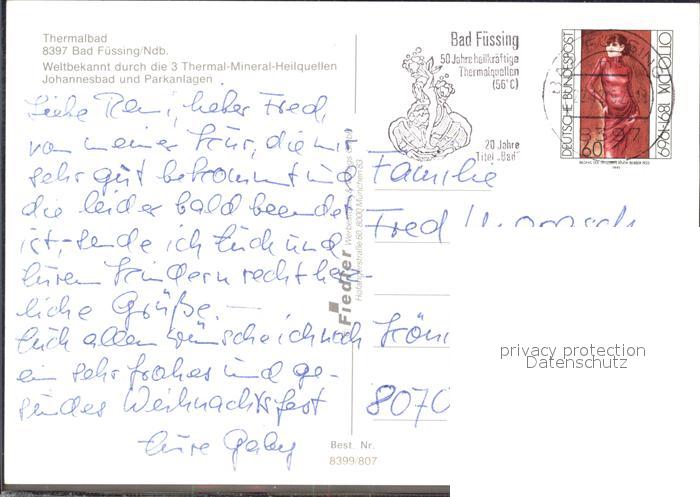 Thermalbad
8397 Bad Füssing/Ndb.
Weltbekannt durch die 3 Thermal-Mineral-Heilquellen
Johannesbad und Parkanlagen
Bad Füssing
50 Jahre heilkräftige
Thermalquellen
(56°C)
20 Jahre
Titel „Bad"
8397
DEUTSCHE BUNDESPOST
60
OTTO DIX 1891-1969
Liebe lieber Fred,
von meiner Kur, die mir
sehr gut bekommt und
die leider bald beendet
ist, sende ich Euch und
Euren Kindern recht herz-
liche Grüße. —
Euch allen wünsche ich noch
ein sehr frohes und ge-
sundes Weihnachtsfest
Eure Gaby
Familie
Fred
8070
Fiedler
8000 München
Best. Nr.
8399/807
privacy protection
Datenschutz